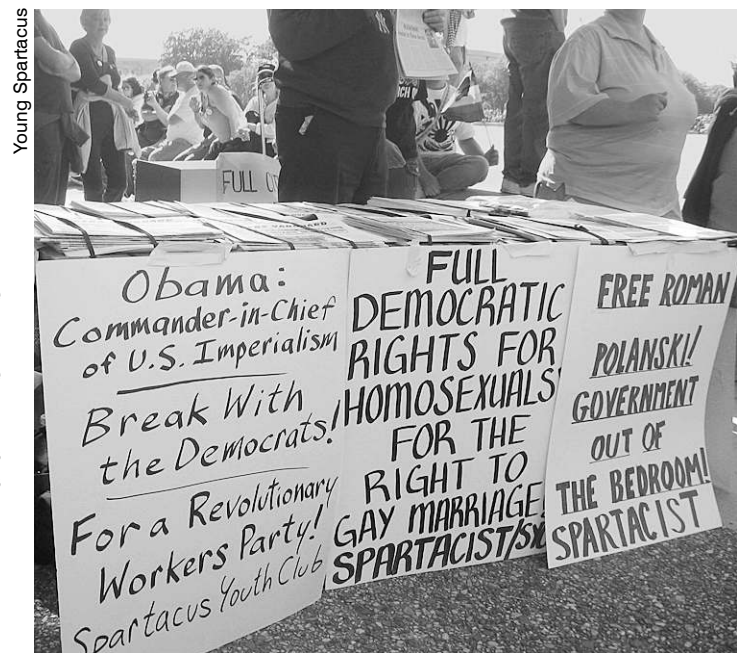 Young Spartacus
FULL
VANGUARD
Obama:
Commander-in-Chief
of U.S. Imperialism
Break With
the Democrats!
For a Revolutionary
Workers Party!
Spartacus Youth Club
FULL
DEMOCRATIC
RIGHTS FOR
HOMOSEXUALS
FOR THE
RIGHT TO
GAY MARRIAGE
SPARTACIST/SYC
FREE ROMAN
POLANSKI!
GOVERNMENT
OUT OF
THE BEDROOM!
SPARTACIST